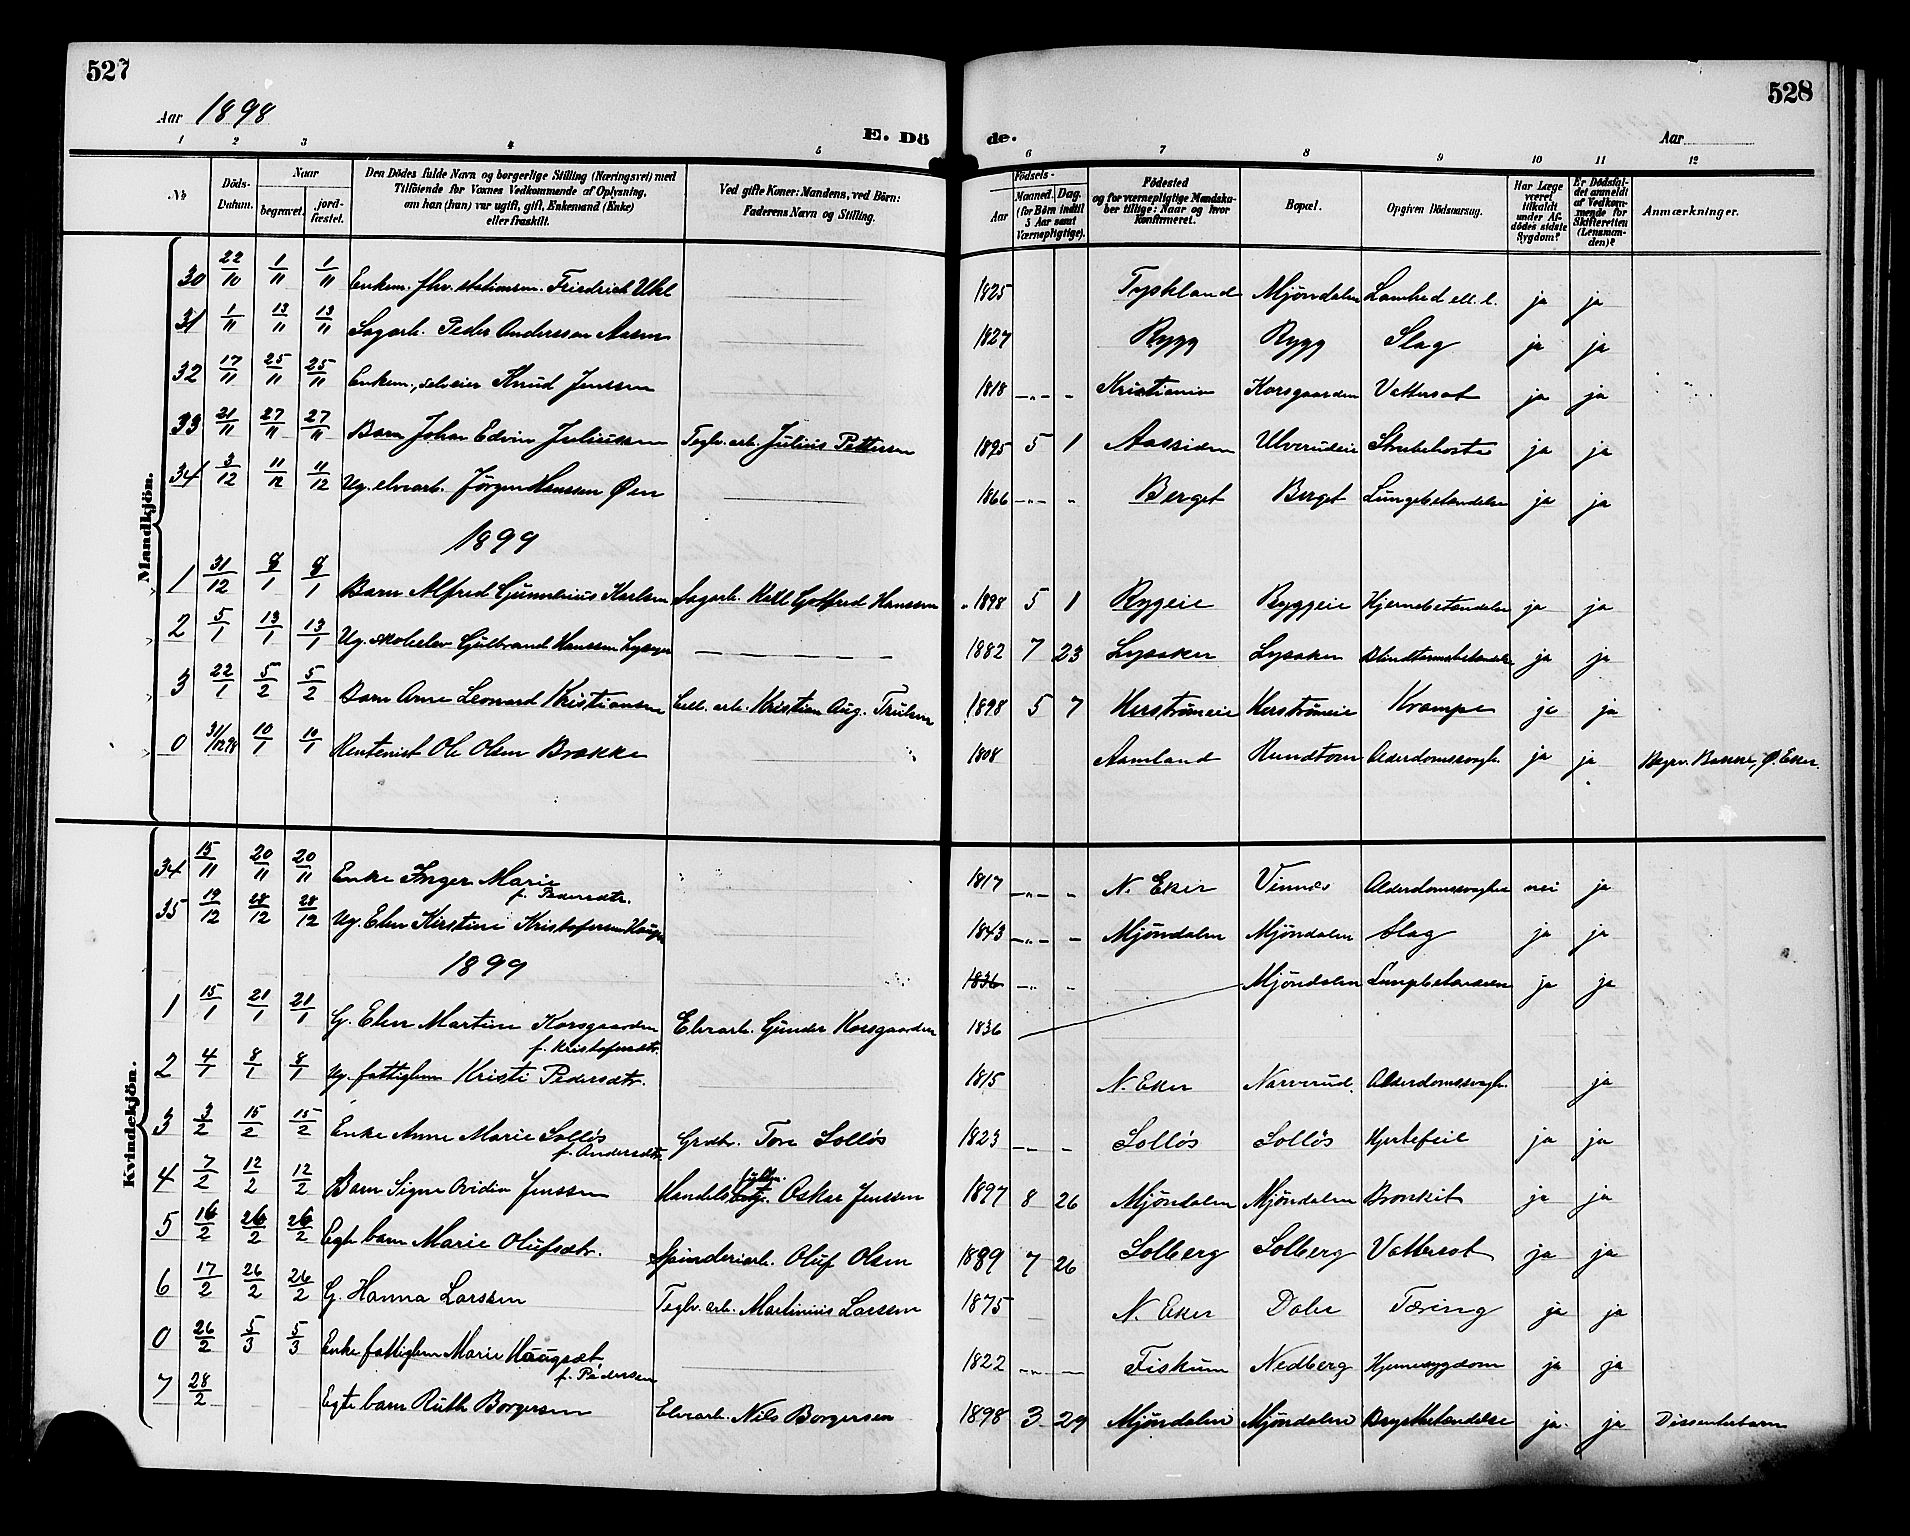 527
528
Aar 1898
Aar
E. Dö de.
1 2 3 4 5 6 7 8 9 10 11 12
No
Döds-Datum.
Naar
begravet.
jord-fæstet.
Den Dödes fulde Navn og borgerlige Stilling (Næringsvei) med
Tilföiende for Voxnes Vedkommende af Oplysning,
om han (hun) var ugift, gift, Enkemand (Enke)
eller fraskilt.
Ved gifte Koner: Mandens, ved Börn:
Faderens Navn og Stilling.
Födsels-
Aar
Maaned. Dag.
(for Börn indtil
5 Aar samt
Værnepligtige).
Födested
og for værnepligtige Mandska-
ber tillige: Naar og hvor
Konfirmeret.
Bopæl.
Opgiven Dödsaarsag.
Har Læge
været
tilkaldt
under Af-
dödes sidste
Sygdom?
Er Dödsfal-
det anmeldt
af Vedkom-
mende for
Skifteretten
(Lensman-
den)?
Anmærkninger.
Mandkjön.
30 22/10 1/11 1/11 Enkem. fhv. stationsm. Friedrich Uhl 1825 Tyskland Mjöndalen Lamhed ell. l. ja ja
31 1/11 13/11 13/11 Sagarb. Peder Anderssen Aasen 1827 Rygg Rygg Slag ja ja
32 17/11 25/11 25/11 Enkem., selveier Knud Jenssen 1818 Kristiania Korsgaarden Vattersot ja ja
33 21/11 27/11 27/11 Barn Johan Edvin Juliussen Teglv. arb. Julius Pettersen 1895 5 1 Aassiden Ulverudeie Strubehoste ja ja
34 3/12 11/12 11/12 Ug. elvearb. Jörgen Hanssen Øen 1866 Berget Berget Lungebetændelse ja ja
1899
1 31/12 8/1 8/1 Barn Alfred Gunnerius Karlsen Sagarb. Karl Gotfred Hanssen 1898 5 1 Rygeie Ryggeie Hjernebetændelse ja ja
2 5/1 13/1 13/1 Ug. skoleelev Gulbrand Hanssen Lysaker 1882 7 23 Lysaker Lysaker Blindtarmsbetændelse ja ja
3 22/1 5/2 5/2 Barn Arne Leonard Kristiansen Cell. arb. Kristian Aug. Trulsen 1898 5 7 Herströmeie Herströmeie Krampe ja ja
0 31/12 98 10/1 10/1 Rentenist Ole Olsen Brække 1808 Aamland Rundtom Alderdomssvagh. ja ja Begrv. Bakke, Ø. Eker.
Kvindekjön.
34 15/11 20/11 20/11 Enke Inger Marie 1817 N. Eker Vinnæs Alderdomssvaghe nei ja
f. Pedersdtr.
35 19/12 28/12 28/12 Ug. Elen Kirstine Kristofersen Haugen 1843 Mjöndalen Mjöndalen Slag ja ja
1899
1836 Mjöndalen Lungebetændelse ja ja
1 15/1 21/1 21/1 G. Elen Martine Korsgaarden Elvearb. Gunder Korsgaarden 1836
f. Kristofersdtr.
2 4/1 8/1 8/1 Ug. fattiglem Kristi Pedersdtr. 1815 N. Eker Narverud. Alderdomssvagh. ja
3 3/2 15/2 15/2 Enke Anne Marie Solløs Grdbr. Tore Solløs 1823 Solløs Solløs Hjertefeil ja ja
f. Andersdtr.
4 7/2 12/2 12/2 Barn Signe Ovidia Jenssen Handelsbetj. Oskar Jenssen 1897 8 26 Mjöndalen Mjöndalen Bronkit ja ja
5 16/2 26/2 26/2 Egte barn Marie Olufsdtr. Spinderiarb. Oluf Olsen 1889 7 26 Solberg Solberg Vattersot ja ja
6 17/2 26/2 26/2 G. Hanna Larssen Teglv. arb. Martinius Larssen 1875 N. Eker Daler Tæring ja ja
0 26/2 5/3 5/3 Enke fattiglem Marie Haagsdt. 1822 Fiskum Nedberg Hjernesygdom ja ja
f. Pedersen
7 28/2 Egte barn Ruth Borgersen Elvearb. Nils Borgersen 1898 3 29 Mjöndalen Mjöndalen Brystbetændelse ja ja Dissenterbarn